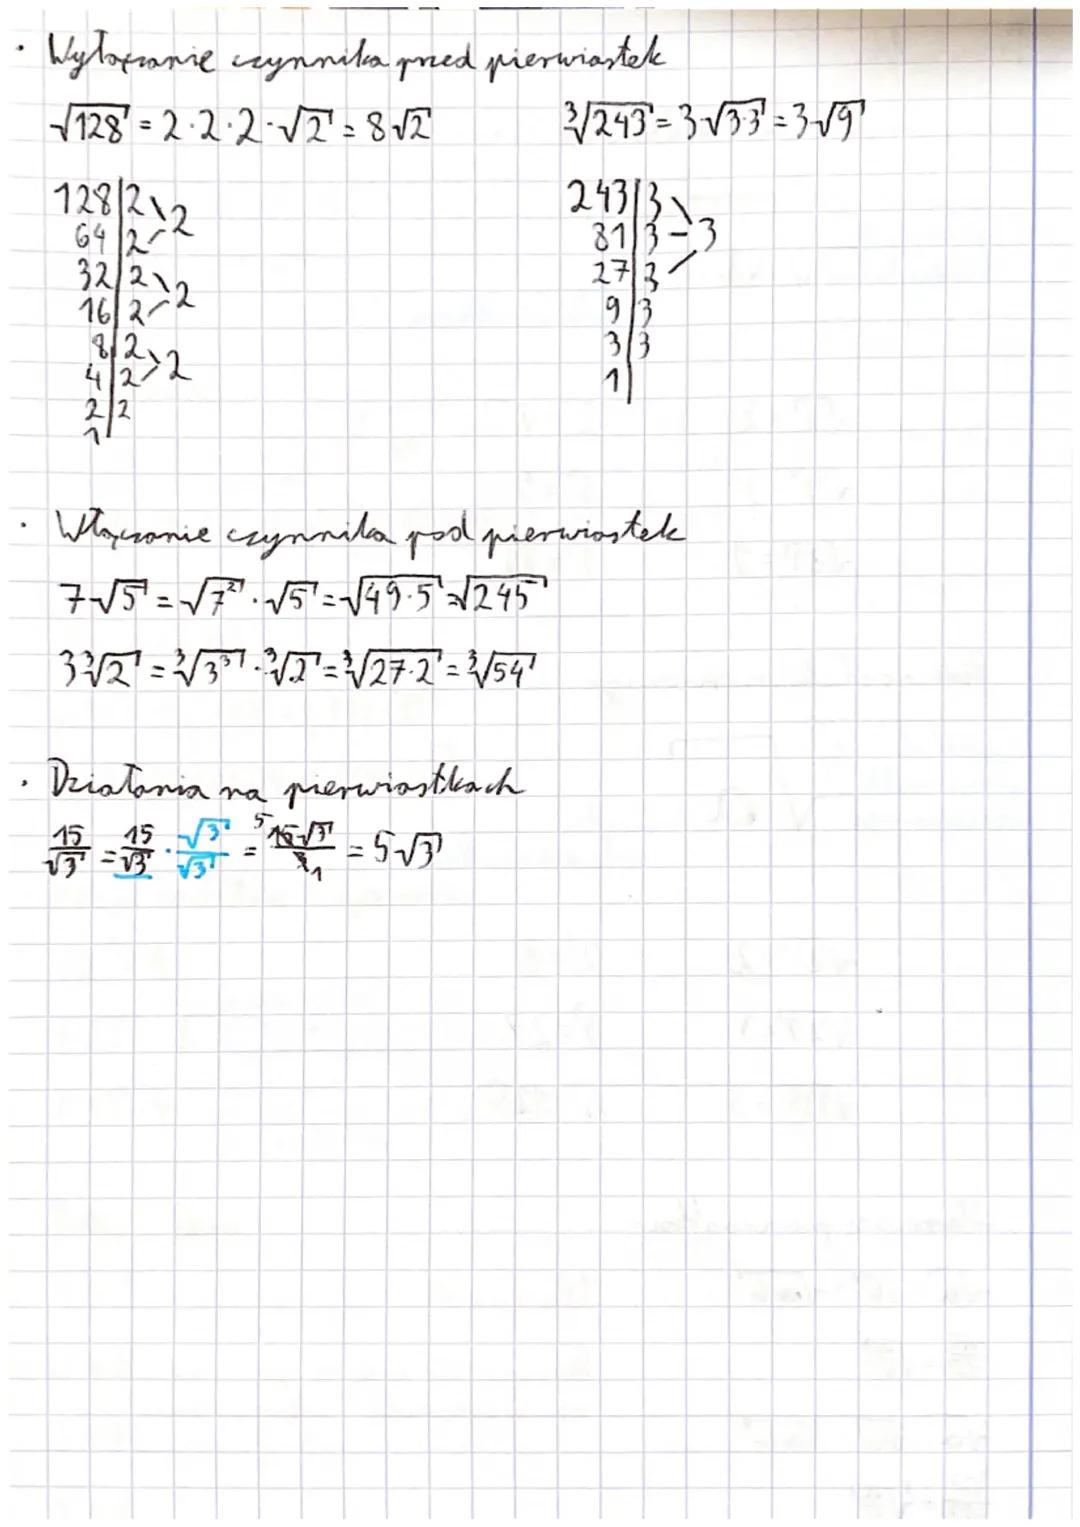 · Wyłączanie czynnika przed pierwiastek
√128 = 2·2·2·√2 = 8√2
128|2 \ 2
64|2 /
32|2 \ 2
16|2 /
8|2 \ 2
4|2 /
2|2
1
∛243 = 3√3·3 = 3√9
243|3 \
81|3 – 3
27|3 /
9|3
3|3
1|
· Włączanie czynnika pod pierwiastek
7√5 = √7² · √5 = √49·5 = √245
3∛2 = ∛3³ · ∛2 = ∛27·2 = ∛54
· Działania na pierwiastkach
15/√3 = 15/√3 · √3/√3 = ⁵15√3/3₁ = 5√3